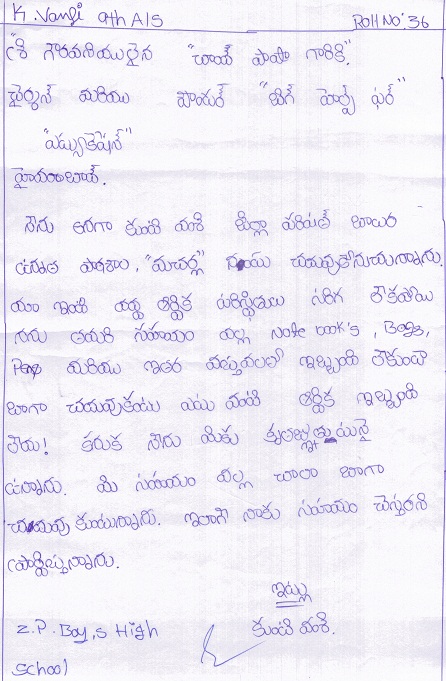 K. Vamsi 9th A/S Roll No: 36
శ్రీ గౌరవనీయులైన "చాంద్ పాషా గారికి".
ఛైర్మన్ మరియు ఫౌండర్ "బిగ్ హెల్ప్ ఫర్"
"ఎడ్యుకేషన్"
హైదరాబాద్.
నేను అనగా కుంచి వంశీ జిల్లా పరిషత్ బాలుర
ఉన్నత పాఠశాల, "మాచర్ల" నందు చదువుకొనుచున్నాను.
మా ఇంటి వద్ద ఆర్థిక పరిస్థితులు సరిగ లేకపోయి
నను తమరి సహాయం వల్ల Note book's, Bags,
Pens మరియు ఇతర వస్తువులలో ఇబ్బంది లేకుండా
బాగా చదువుకుంటు ఎటు వంటి ఆర్థిక ఇబ్బంది
లేదు! కనుక నేను మీకు కృతజ్ఞతుడునై
ఉన్నాను. మీ సహాయం వల్ల చాలా బాగా
చదువు కుంటున్నాను. ఇలాగే నాకు సహాయం చేస్తారని
ప్రార్థిస్తున్నాను.
ఇట్లు
Z.P. Boy,s High కుంచి వంశీ.
School